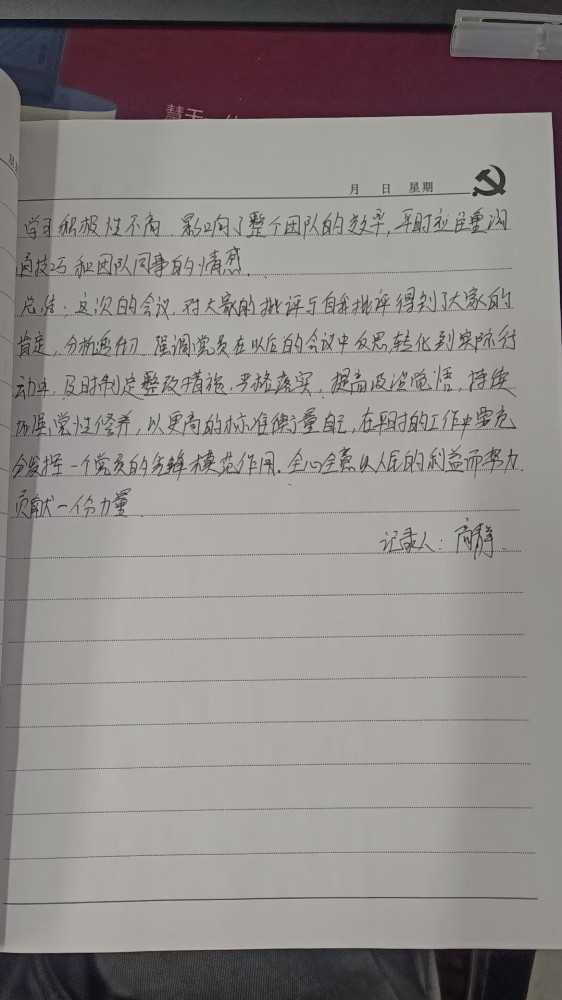 月 日 星期
学习积极性不高 影响了整个团队的效率,平时应注重沟
通技巧和团队同事的情感.
总结:这次的会议,对大家的批评与自我批评得到了大家的
肯定,分析透彻 强调党员在以后的会议中反思,转化到实际行
动中,及时制定整改措施,严格落实,提高政治觉悟,持续
加强党性修养,以更高的标准衡量自己,在平时的工作中要充
分发挥一个党员的先锋模范作用.全心全意以人民的利益而努力.
贡献一份力量.
记录人:高静.